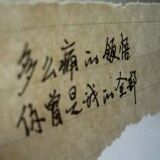 多么痛的领悟
你曾是我的全部